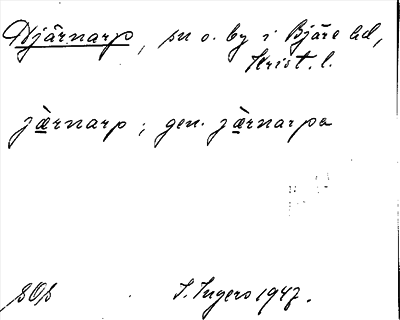 Hjärnarp, sn o. by i Bjäre hd,
Krist. l.
jæ̀rnarp; gen. jæ̀rnarpa
SOb
I. Ingers 1947.